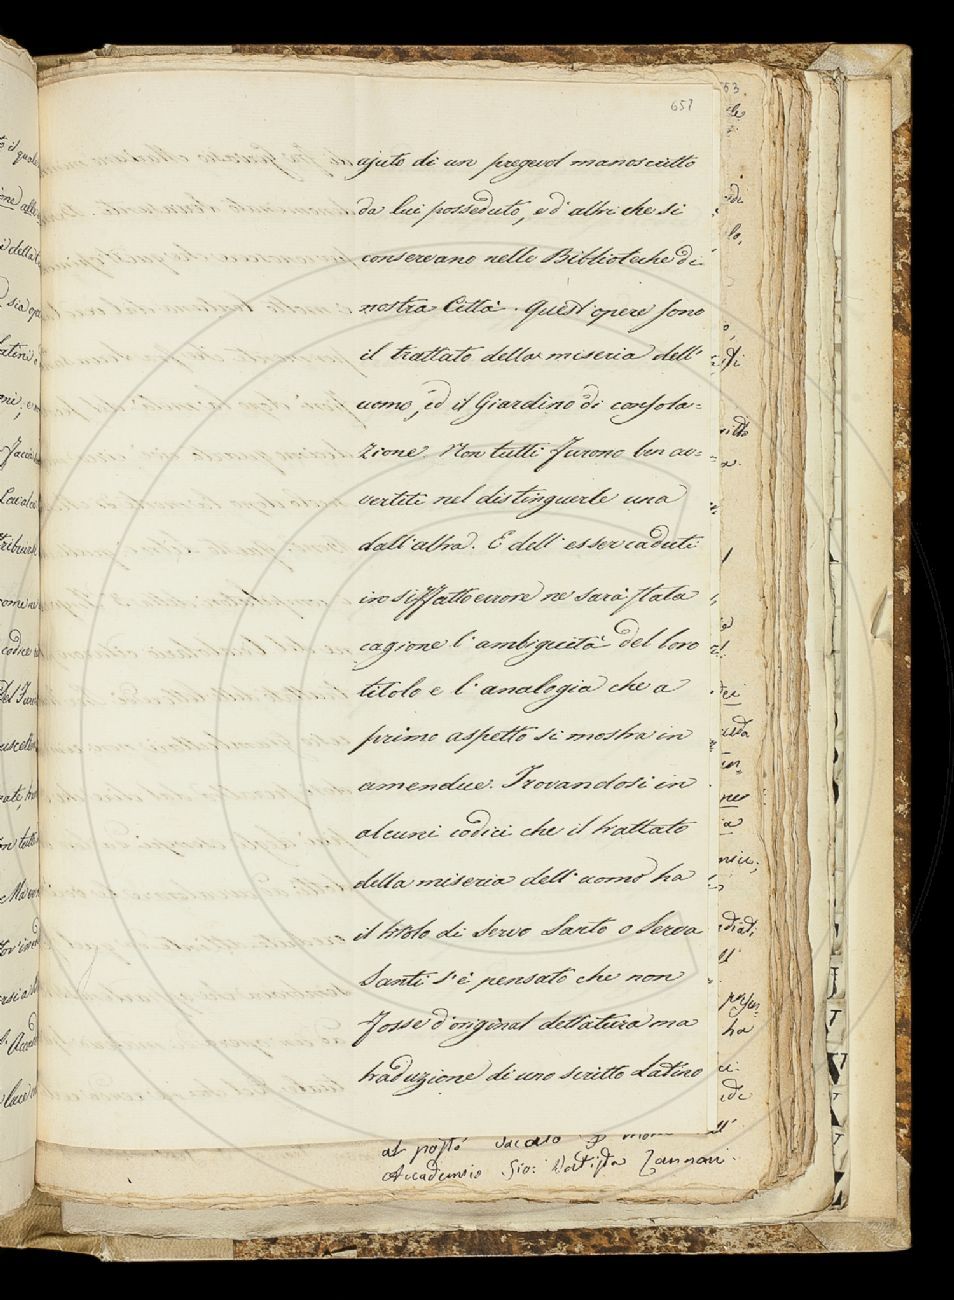 657
ajuto di un pregevol manoscritto
da lui posseduto, e d'altri che si
conservano nelle Biblioteche di
nostra Città. Quest'opere sono
il trattato della miseria dell'
uomo, ed il Giardino di consola=
zione. Non tutti furono ben av=
vertiti nel distinguerle una
dall'altra. E dell'esser caduti
in siffatto errore ne sarà stata
cagione l'ambiguità del loro
titolo e l'analogia che a
primo aspetto si mostra in
amendue. Trovandosi in
alcuni codici che il trattato
della miseria dell'uomo ha
il titolo di Servo Santo o Serva
Santi s'è pensato che non
fosse d'original dettatura ma
traduzione di uno scritto Latino
al posto
Accademico Gio: Batista Zannoni.